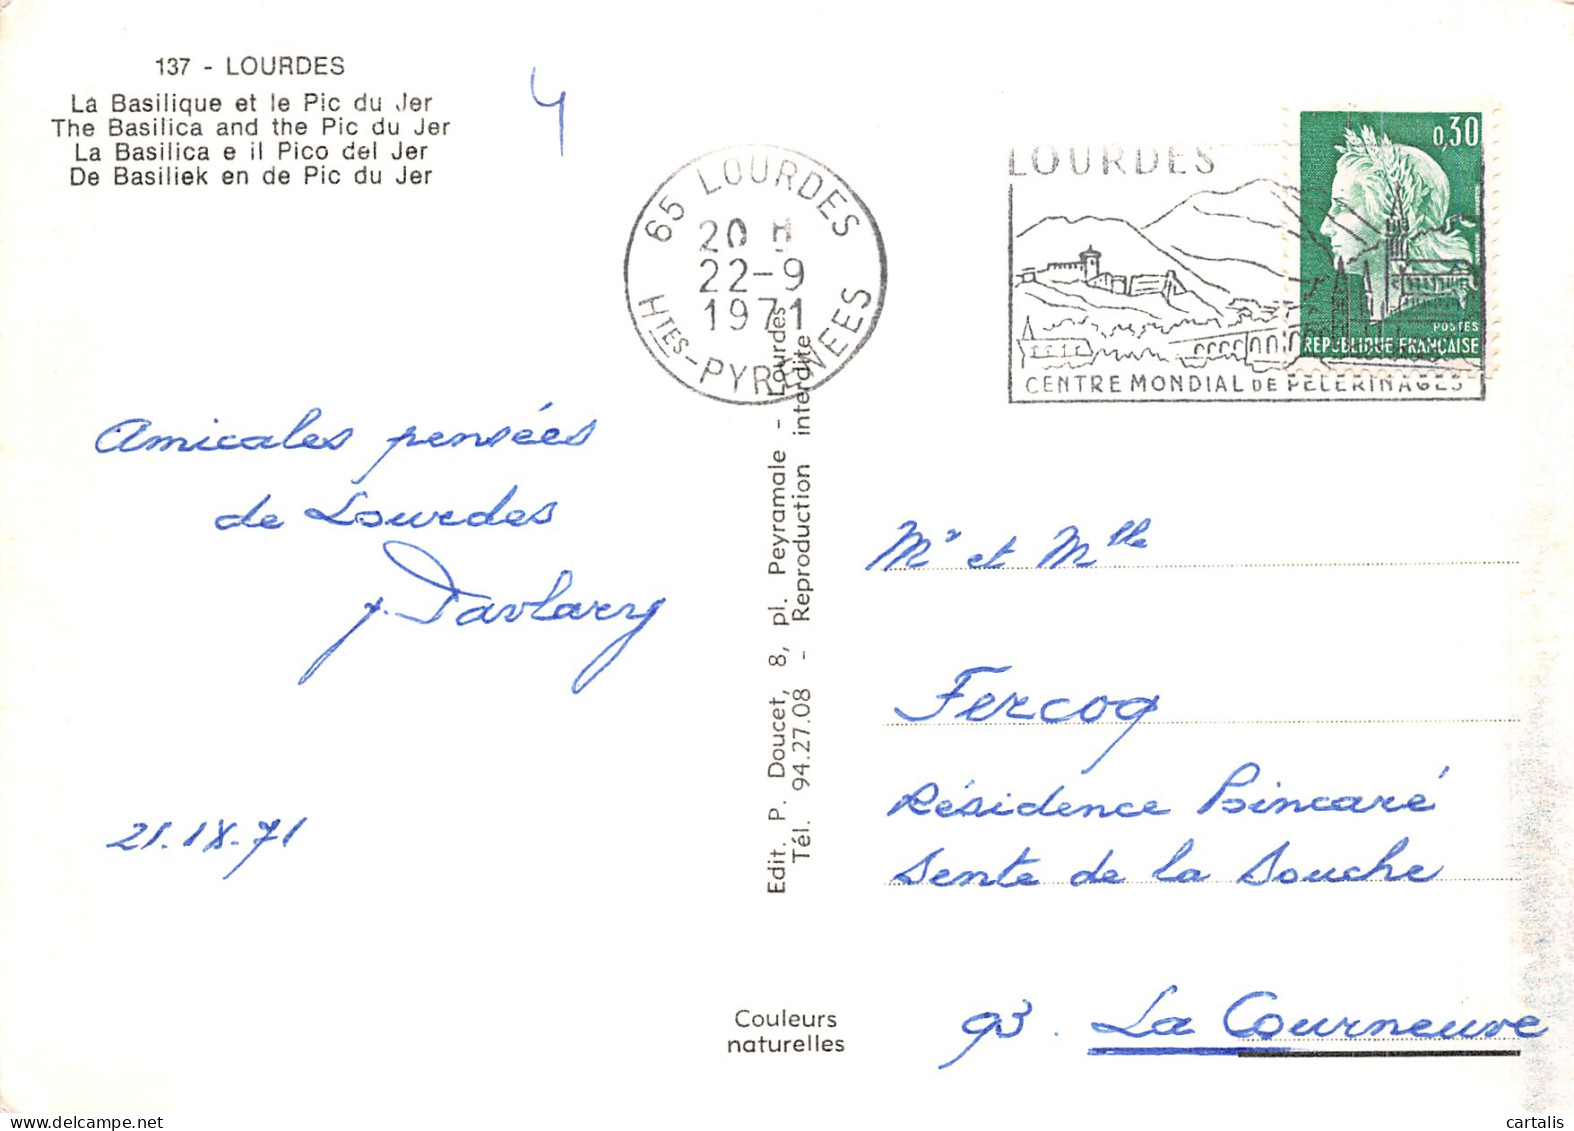 137 - LOURDES
La Basilique et le Pic du Jer
The Basilica and the Pic du Jer
La Basilica e il Pico del Jer
De Basiliek en de Pic du Jer
4
65 LOURDES
20 H
22-9
1971
HTES-PYRENEES
LOURDES
CENTRE MONDIAL DE PELERINAGES
0,30
POSTES
REPUBLIQUE FRANÇAISE
Amicales pensées
de Lourdes
21.IX.71
Edit. P. Doucet, 8, pl. Peyramale - Lourdes
Tél. 94.27.08 - Reproduction interdite
Couleurs
naturelles
Mr et Mlle
Fercoq
Résidence Poincaré
Sente de la Souche
93. La Courneuve
cartalis